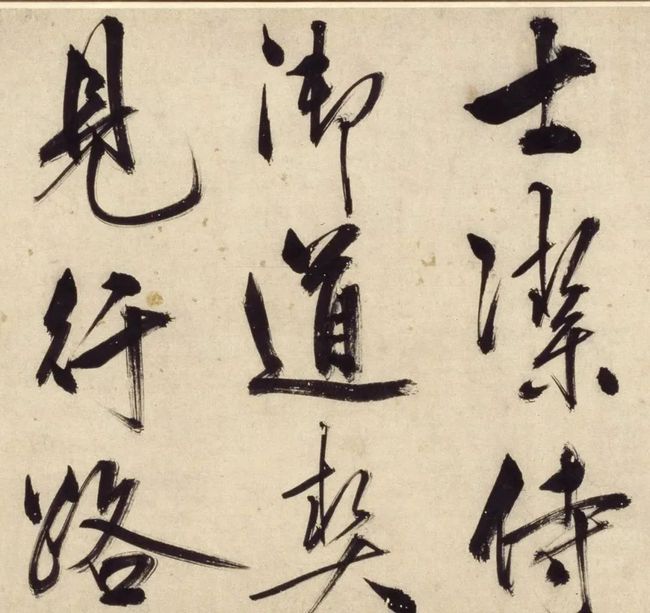 士潔侍
御道契
見行路